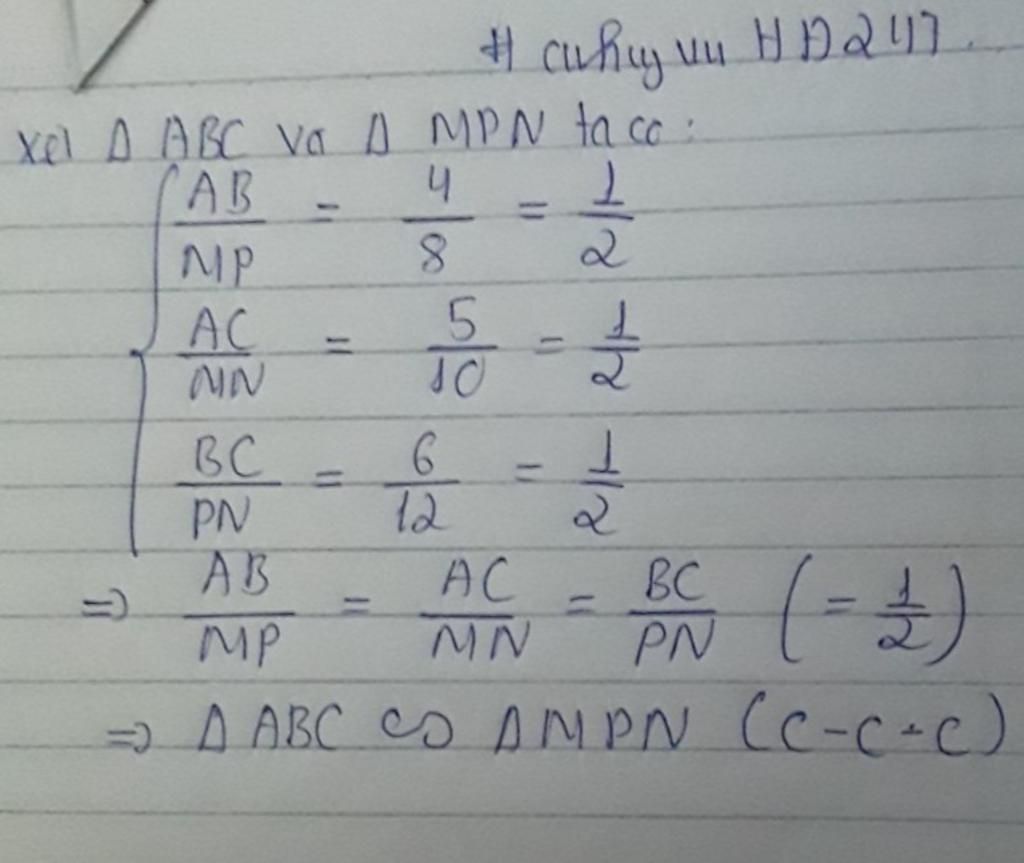 # cuhuy vu HD247.
xet Δ ABC va Δ MPN ta co:
AB/MP = 4/8 = 1/2
AC/MN = 5/10 = 1/2
BC/PN = 6/12 = 1/2
=> AB/MP = AC/MN = BC/PN (= 1/2)
=> Δ ABC ∽ Δ MPN (c-c-c)